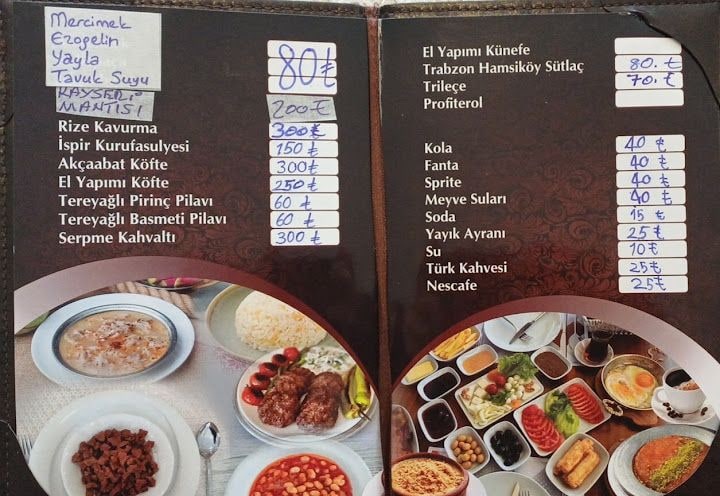 Mercimek
Ezogelin
Yayla
Tavuk Suyu
80 ₺
KAYSERİ
MANTISI 200 ₺
Rize Kavurma 300 ₺
İspir Kurufasulyesi 150 ₺
Akçaabat Köfte 300 ₺
El Yapımı Köfte 250 ₺
Tereyağlı Pirinç Pilavı 60 ₺
Tereyağlı Basmeti Pilavı 60 ₺
Serpme Kahvaltı 300 ₺
El Yapımı Künefe
Trabzon Hamsiköy Sütlaç 80. ₺
Trileçe 70. ₺
Profiterol
Kola 40 ₺
Fanta 40 ₺
Sprite 40 ₺
Meyve Suları 40 ₺
Soda 15 ₺
Yayık Ayranı 25 ₺
Su 10 ₺
Türk Kahvesi 25 ₺
Nescafe 25 ₺